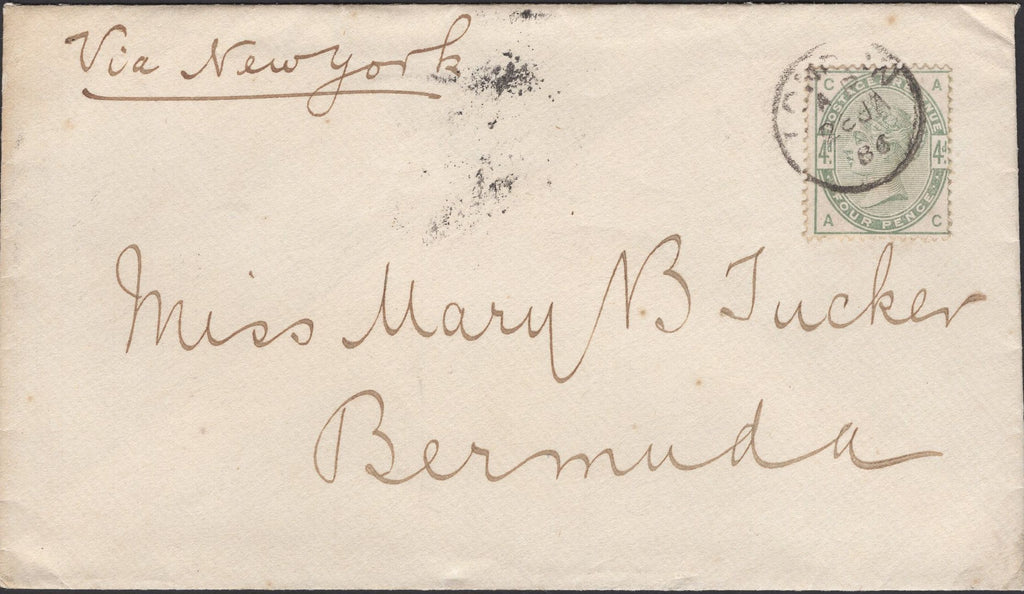 Via New York
C A
POSTAGE & REVENUE
4D 4D
FOUR PENCE
A C
LONDON
86
Miss Mary B Tucker
Bermuda